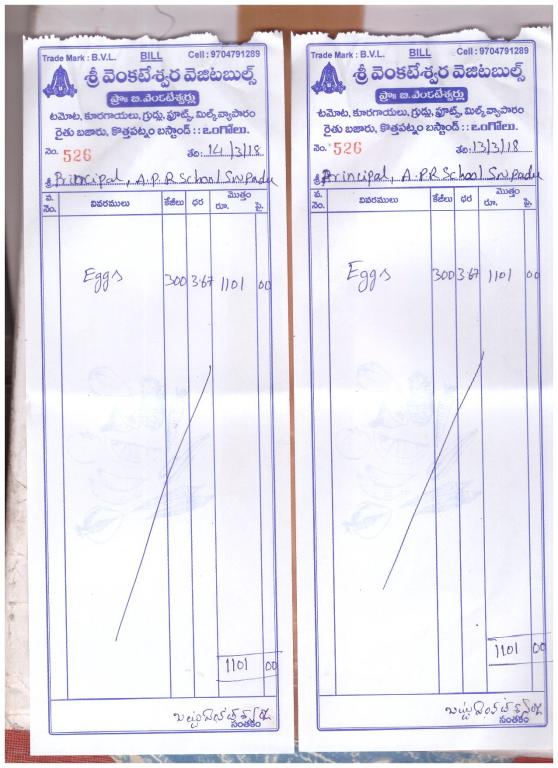 Trade Mark : B.V.L. BILL Cell : 9704791289
శ్రీ వెంకటేశ్వర వెజిటబుల్స్
ప్రొః బి.వెంకటేశ్వర్లు
టమోట, కూరగాయలు, గ్రుడ్లు, ఫ్రూట్స్, మిల్క్ వ్యాపారం
రైతు బజారు, కొత్తపట్నం బస్టాండ్ :: ఒంగోలు.
నెం. 526 తేది: 14/3/18
శ్రీ Principal, A.P.R School
వ. నెం. వివరములు కేజీలు ధర మొత్తం రూ. పై.
Eggs 300 3.67 1101 00
1101 00
సంతకం
Trade Mark : B.V.L. BILL Cell : 9704791289
శ్రీ వెంకటేశ్వర వెజిటబుల్స్
ప్రొః బి.వెంకటేశ్వర్లు
టమోట, కూరగాయలు, గ్రుడ్లు, ఫ్రూట్స్, మిల్క్ వ్యాపారం
రైతు బజారు, కొత్తపట్నం బస్టాండ్ :: ఒంగోలు.
నెం. 526 తేది: 13/3/18
శ్రీ Principal, A.P.R School
వ. నెం. వివరములు కేజీలు ధర మొత్తం రూ. పై.
Eggs 300 3.67 1101 00
1101 00
సంతకం